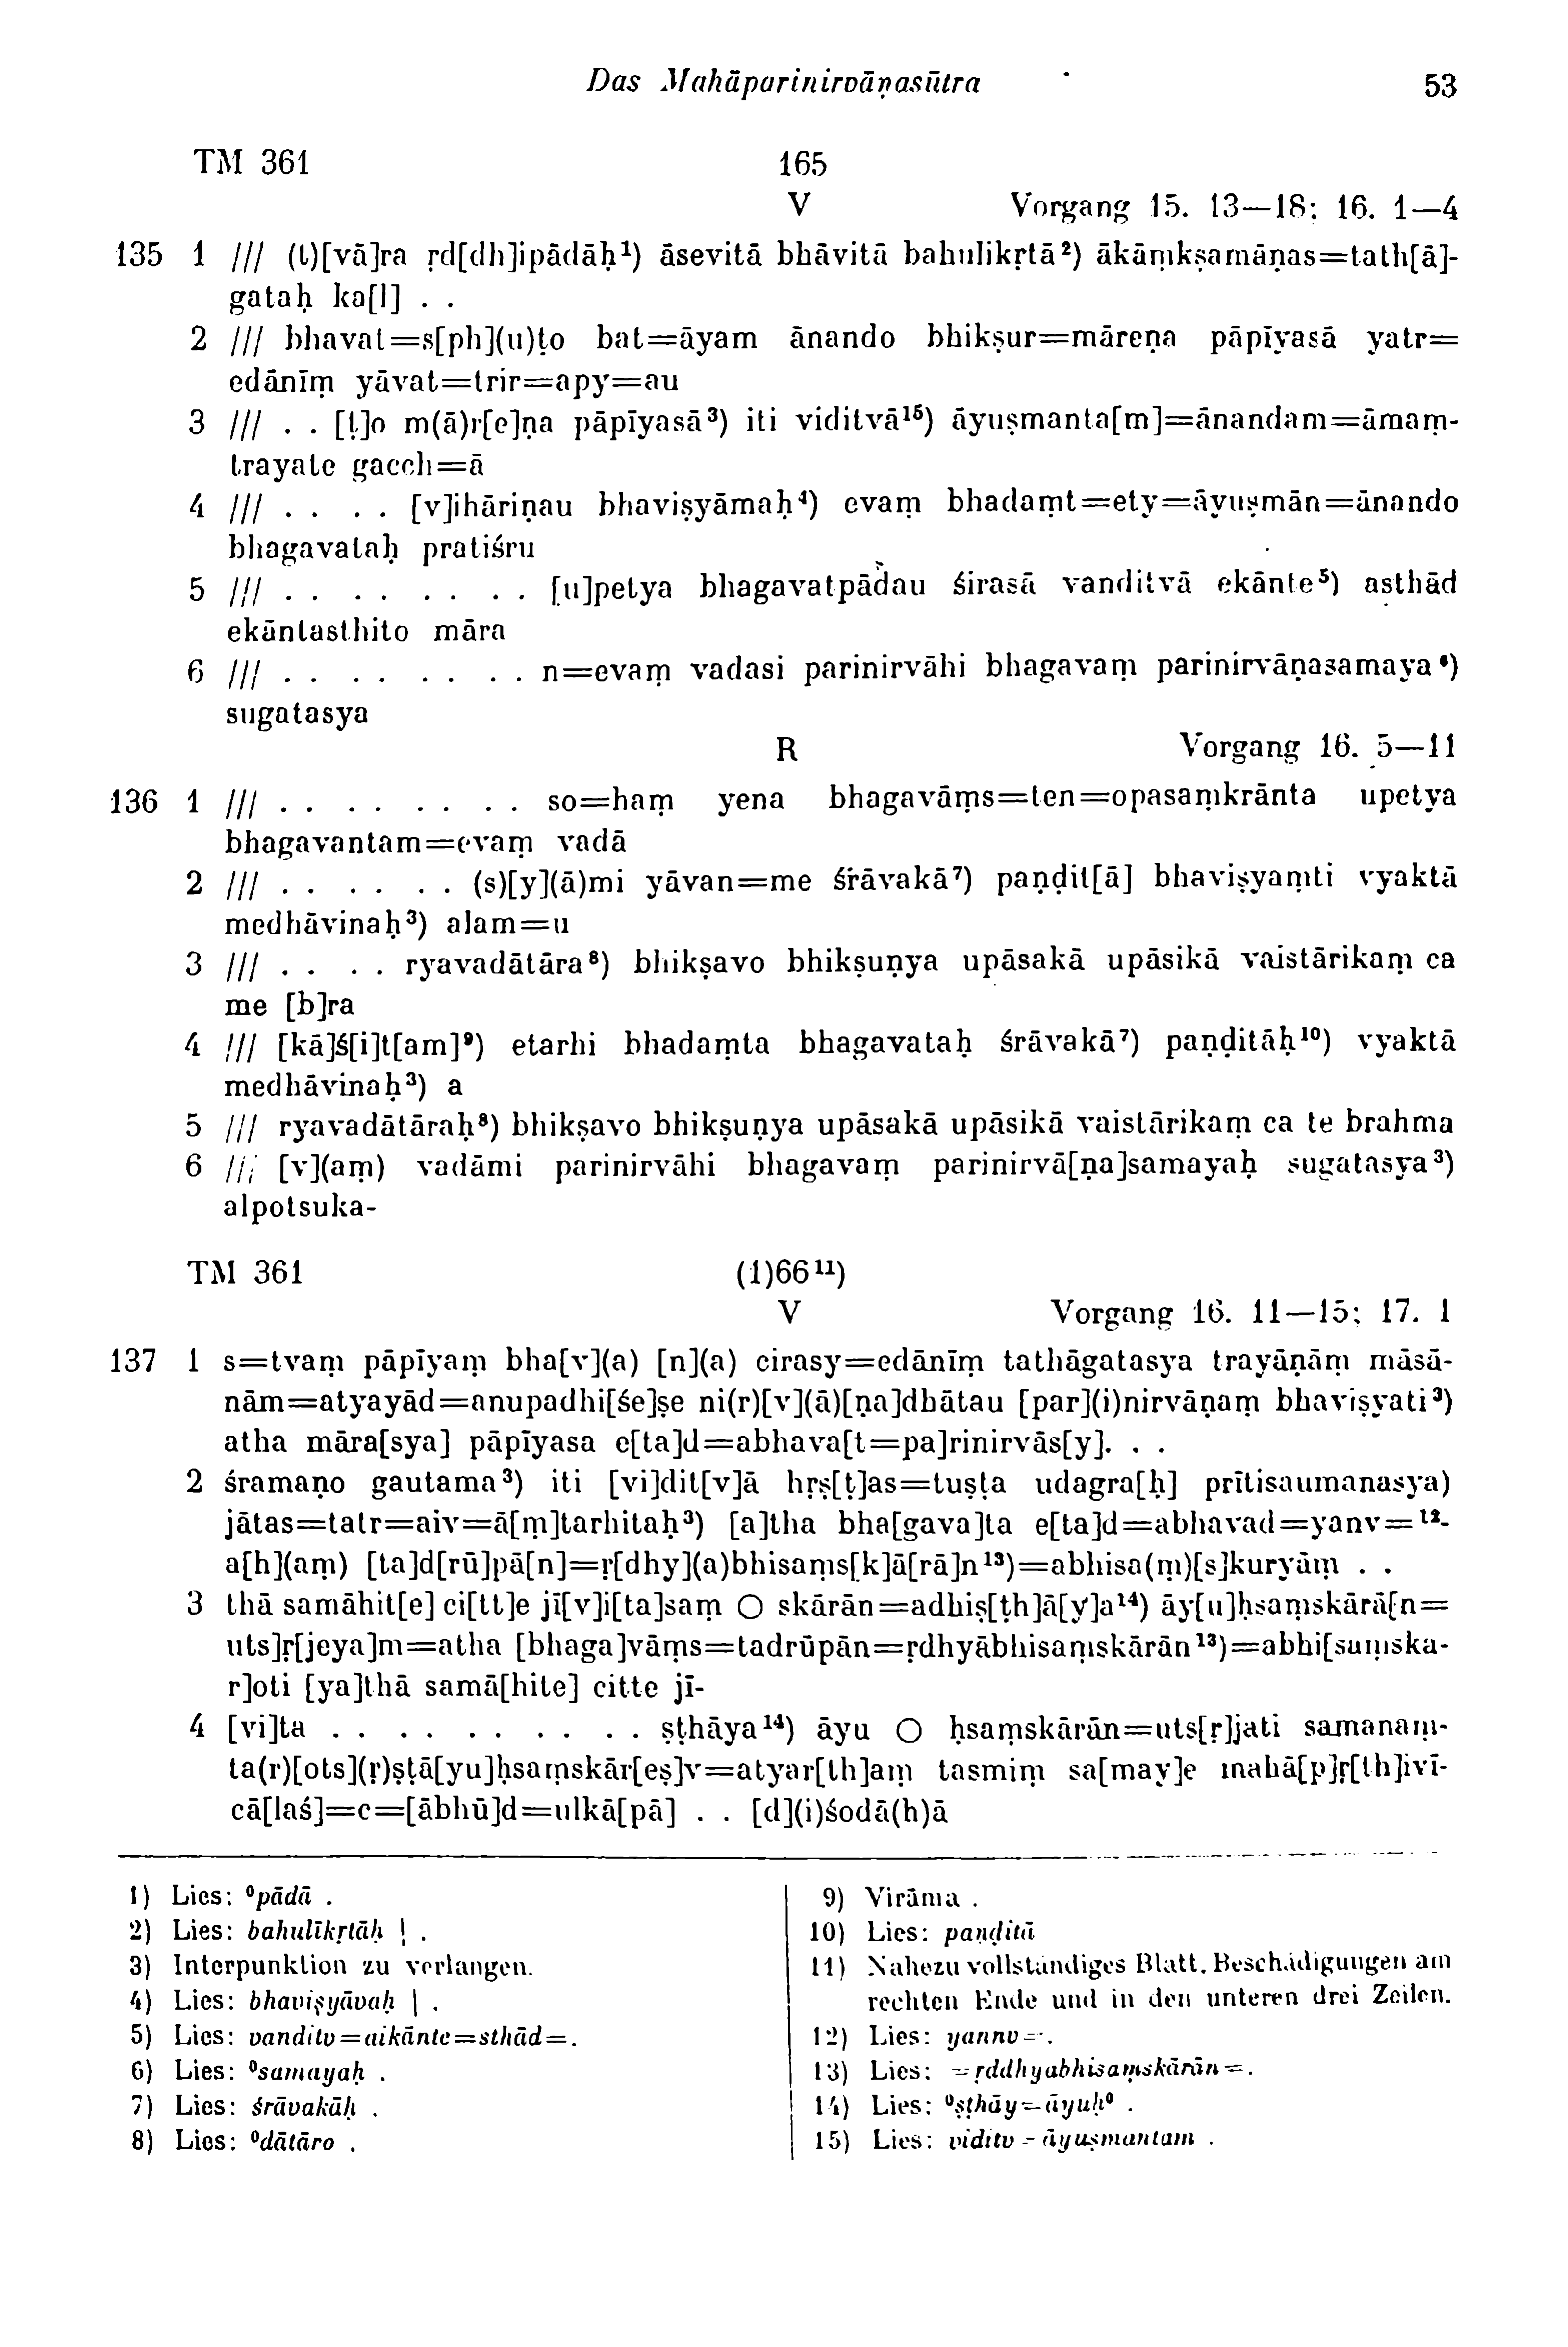 Das Mahāparinirvāṇasūtra 53
TM 361 165
V Vorgang 15. 13—18; 16. 1—4
135 1 /// (t)[vā]ra ṛd[dh]ipādāḥ¹) āsevitā bhāvitā bahulikṛtā²) ākāṃkṣamāṇas=tath[ā]-
gataḥ ka[l] . .
2 /// bhavat=s[ph](u)ṭo bat=āyam ānando bhikṣur=māreṇa pāpīyasā yatr=
edānīṃ yāvat=trir=apy=au
3 /// . . [ṭ]o m(ā)r[e]ṇa pāpīyasā³) iti viditvā¹⁵) āyuṣmanta[m]=ānandam=āmaṃ-
trayate gacch=ā
4 /// . . . . [v]ihāriṇau bhaviṣyāmaḥ⁴) evaṃ bhadaṃt=ety=āyuṣmān=ānando
bhagavataḥ pratiśru
5 /// . . . . . . . . [u]petya bhagavatpādau śirasā vanditvā ekānte⁵) asthād
ekāntasthito māra
6 /// . . . . . . . . n=evaṃ vadasi parinirvāhi bhagavaṃ parinirvāṇasamaya⁶)
sugatasya
R Vorgang 16. 5—11
136 1 /// . . . . . . . . so=haṃ yena bhagavāṃs=ten=opasaṃkrānta upetya
bhagavantam=evaṃ vadā
2 /// . . . . . . (s)[y](ā)mi yāvan=me śrāvakā⁷) paṇḍit[ā] bhaviṣyaṃti vyaktā
medhāvinaḥ³) alam=u
3 /// . . . . ryavadātāra⁸) bhikṣavo bhikṣuṇya upāsakā upāsikā vaistārikaṃ ca
me [b]ra
4 /// [kā]ś[i]t[am]⁹) etarhi bhadaṃta bhagavataḥ śrāvakā⁷) paṇḍitāḥ¹⁰) vyaktā
medhāvinaḥ³) a
5 /// ryavadātāraḥ⁸) bhikṣavo bhikṣuṇya upāsakā upāsikā vaistārikaṃ ca te brahma
6 /// [v](aṃ) vadāmi parinirvāhi bhagavaṃ parinirvā[ṇa]samayaḥ sugatasya³)
alpotsuka-
TM 361 (1)66¹¹)
V Vorgang 16. 11—15; 17. 1
137 1 s=tvaṃ pāpīyaṃ bha[v](a) [n](a) cirasy=edānīṃ tathāgatasya trayāṇāṃ māsā-
nām=atyayād=anupadhi[śe]ṣe ni(r)[v](ā)[ṇa]dhātau [par](i)nirvāṇaṃ bhaviṣyati³)
atha māra[sya] pāpīyasa e[ta]d=abhava[t=pa]rinirvās[y]. . .
2 śramaṇo gautama³) iti [vi]dit[v]ā hṛṣ[ṭ]as=tuṣṭa udagra[ḥ] prītisaumanasya)
jātas=tatr=aiv=ā[ṃ]tarhitaḥ³) [a]tha bha[gava]ta e[ta]d=abhavad=yanv=¹²-
a[h](aṃ) [ta]d[rū]pā[n]=ṛ[dhy](a)bhisaṃs[k]ā[rā]n¹³)=abhisa(ṃ)[s]kuryāṃ . .
3 thā samāhit[e] ci[tt]e jī[v]i[ta]saṃ O skārān=adhiṣ[ṭh]ā[y]a¹⁴) āy[u]ḥsaṃskārā[n=
uts]ṛ[jeya]m=atha [bhaga]vāṃs=tadrūpān=ṛdhyābhisaṃskārān¹³)=abhi[saṃska-
r]oti [ya]thā samā[hite] citte jī-
4 [vi]ta . . . . . . . . . . ṣṭhāya¹⁴) āyu O ḥsaṃskārān=uts[ṛ]jati samanaṃ-
ta(r)[ots](ṛ)ṣṭā[yu]ḥsaṃskār[eṣ]v=atyar[th]aṃ tasmiṃ sa[may]e mahā[p]ṛ[th]ivī-
cā[laś]=c=[ābhū]d=ulkā[pā] . . [d](i)śodā(h)ā
1) Lies: ⁰pādā .
2) Lies: bahulīkṛtāḥ | .
3) Interpunktion zu verlangen.
4) Lies: bhaviṣyāvaḥ | .
5) Lies: vanditv=aikānte=sthād=.
6) Lies: ⁰samayaḥ .
7) Lies: śrāvakāḥ .
8) Lies: ⁰dātāro .
9) Virāma .
10) Lies: paṇḍitā
11) Nahezu vollständiges Blatt. Beschädigungen am
rechten Ende und in den unteren drei Zeilen.
12) Lies: yannv=.
13) Lies: =ṛddhyabhisaṃskārān=.
14) Lies: ⁰ṣṭhāy=āyuḥ⁰ .
15) Lies: viditv=āyuṣmantam .